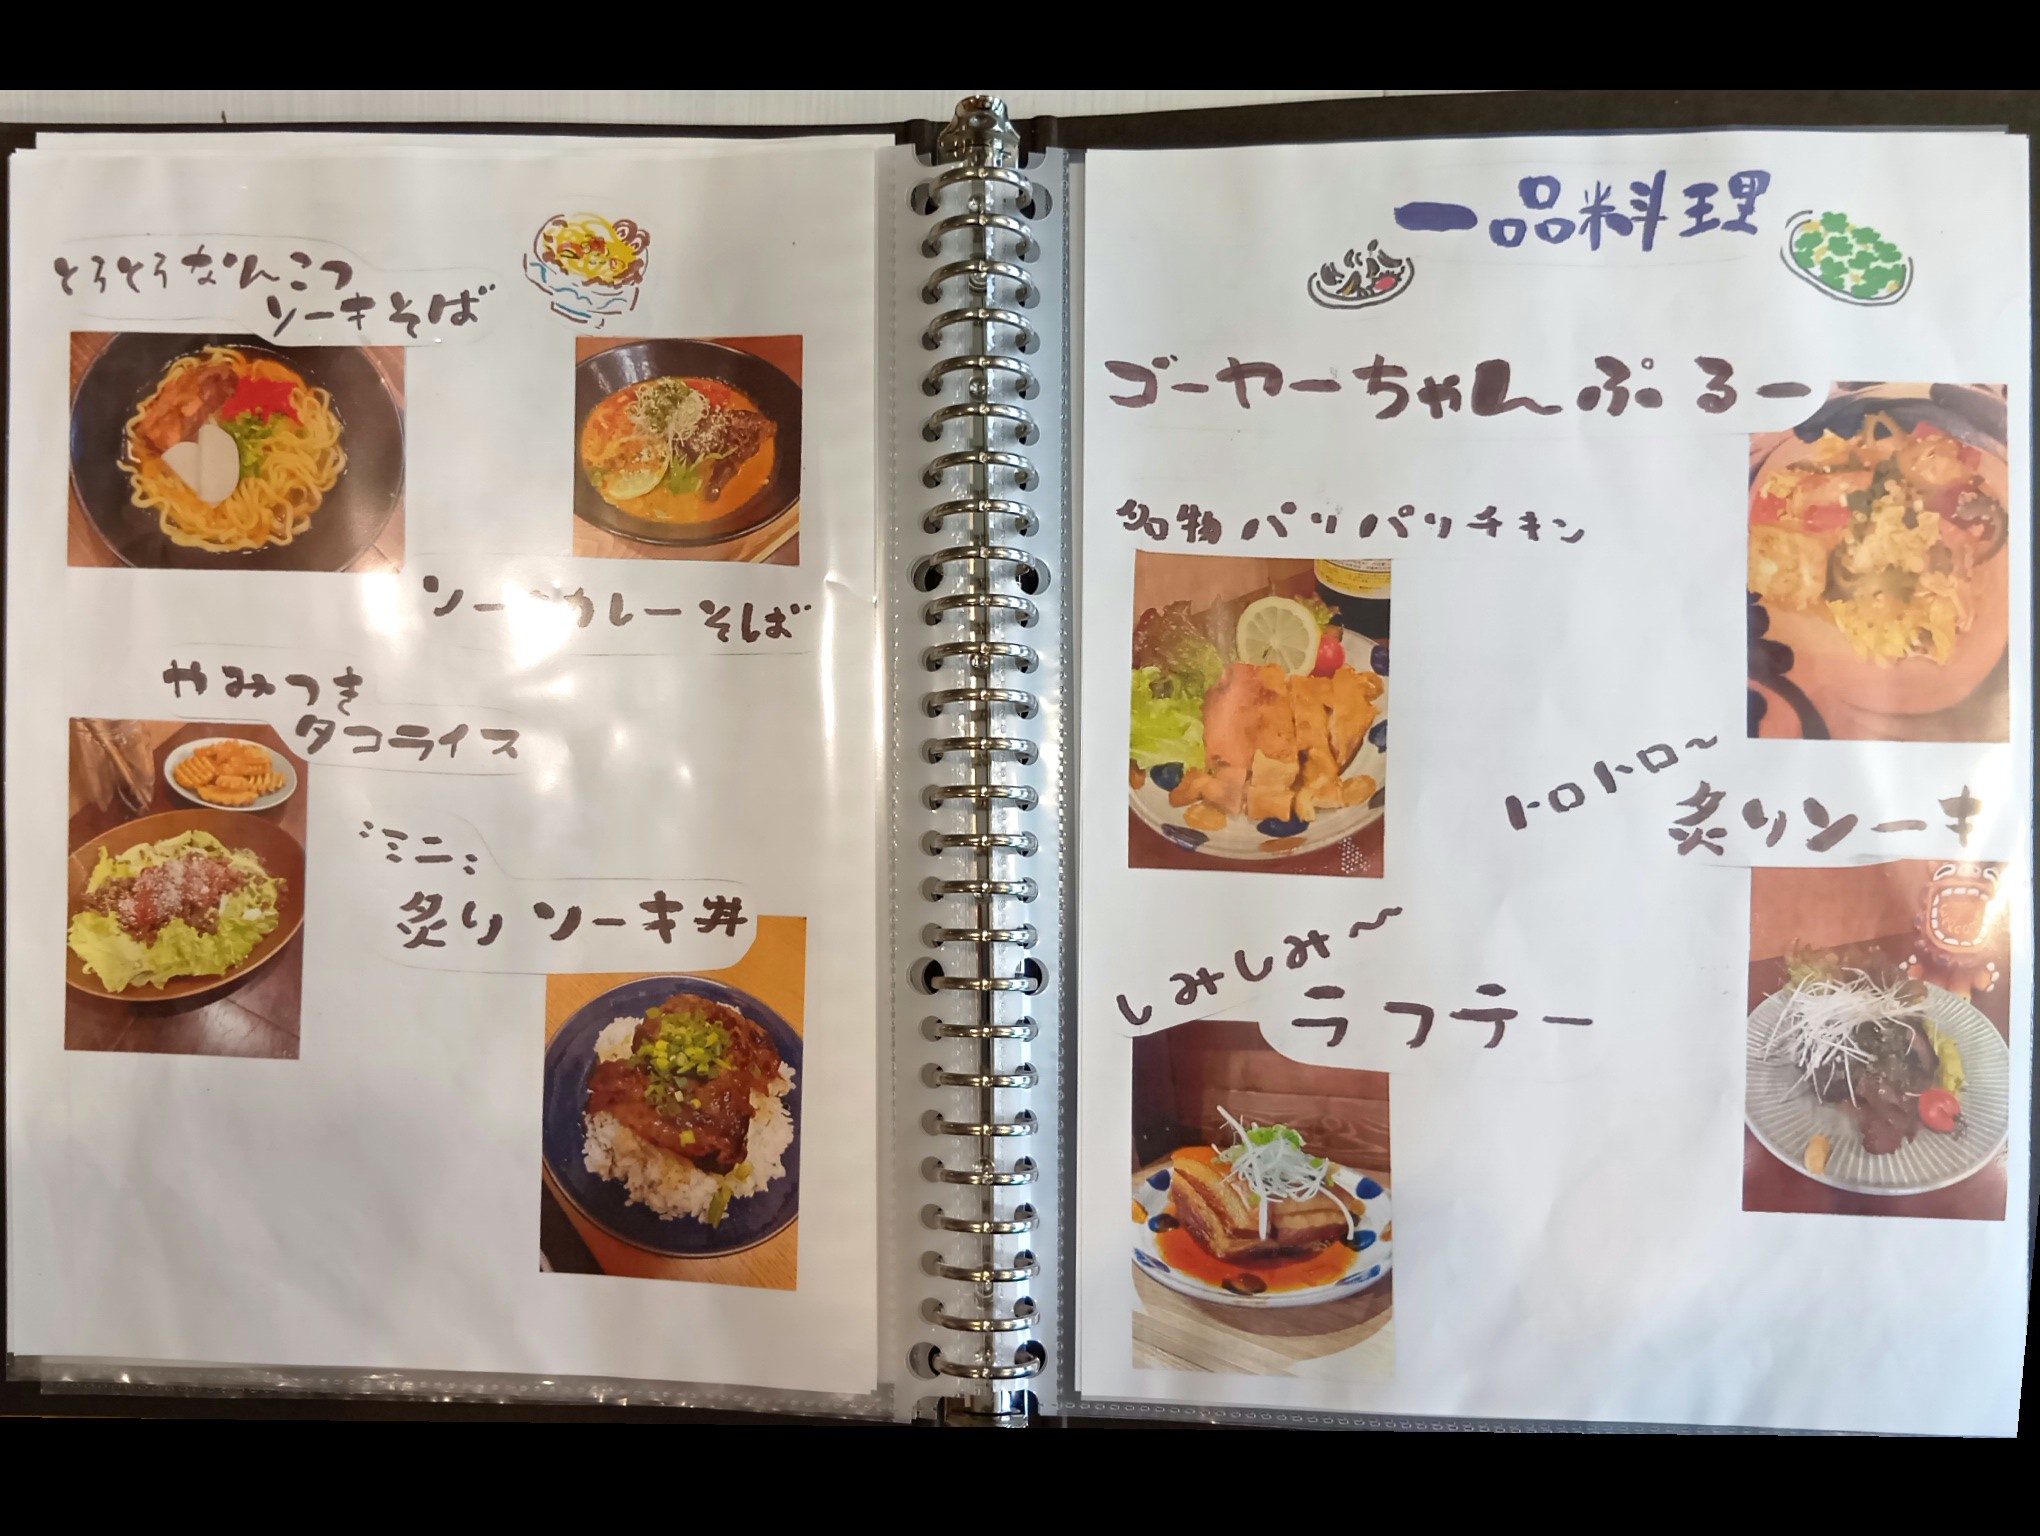 とろとろなんこつ
ソーキそば
カレーそば
やみつき
タコライス
ミニ
炙りソーキ丼
一品料理
ゴーヤーちゃんぷるー
名物パリパリチキン
トロトロ～
炙りソーキ
しみしみ～
ラフテー